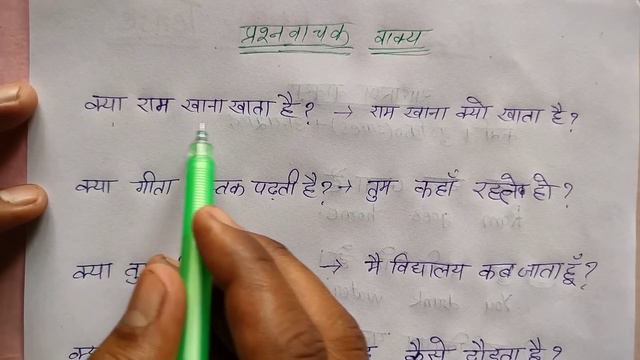 प्रश्नवाचक वाक्य
क्या राम खाना खाता है? → राम खाना क्यो खाता है?
क्या गीता तक पढ़ती है? → तुम कहाँ रहते हो?
क्या → मै विद्यालय कब जाता हूँ?
कैसे दौड़ता है?